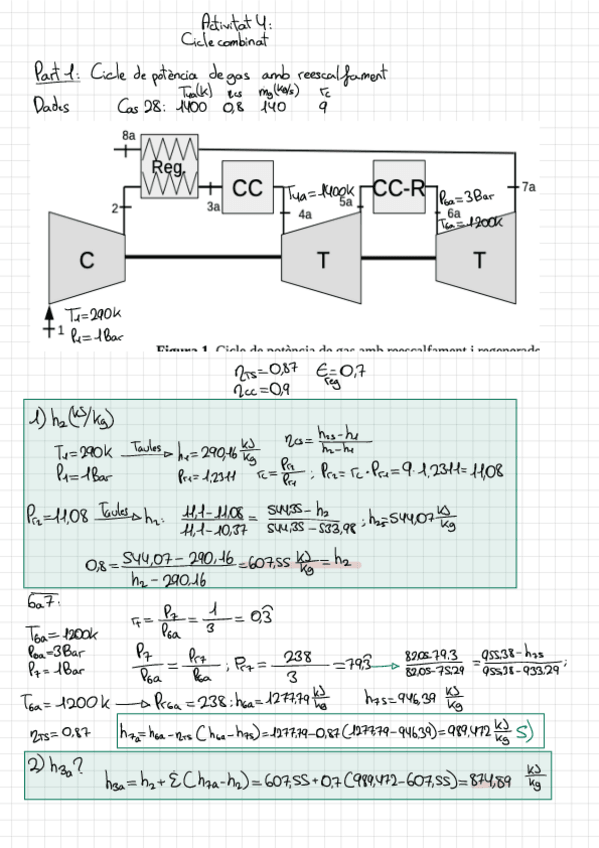 Activitat 4:
Cicle combinat
Part 1: Cicle de potència de gas amb reescalfament
T4a(K) ηcs mg(kg/s) rc
Dades Cas 28: 1400 0,8 140 9
8a
Reg.
CC
T4a=1400k
CC-R
P6a=3Bar
7a
2
3a
4a
5a
6a
T6a=1200k
C
T
T
1
T1=290k
P1=1Bar
Figura 1. Cicle de potència de gas amb reescalfament i regenerado
ηTS=0,87 Ɛreg=0,7
ηcc=0,9
1) h2(kJ/kg)
T1=290K Taules h1=290,16 kJ/kg ηcs= h2s-h1 / h2-h1
P1=1Bar Pr1=1,2311 rc= Pr2/Pr1 ; Pr2=rc·Pr1=9·1,2311=11,08
Pr2=11,08 Taules h2: 11,1-11,08 / 11,1-10,37 = 544,35-h2 / 544,35-533,98 ; h2s=544,07 kJ/kg
0,8= 544,07-290,16 / h2-290,16 =607,55 kJ/kg = h2
6a7:
T6a=1200k
P6a=3Bar
P7=1Bar
r= P7/P6a = 1/3 = 0,3
P7/P6a = Pr7/Pr6a ; Pr7= 238/3 =79,3 → 82,05-79,3 / 82,05-75,29 = 955,38-h7s / 955,38-933,29 ;
T6a=1200K → Pr6a=238; h6a=1277,79 kJ/kg h7s=946,39 kJ/kg
ηTS=0,87 h7a=h6a-ηTS(h6a-h7s)=1277,79-0,87(1277,79-946,39)=989,472 kJ/kg 5)
2) h3a?
h3a=h2+Ɛ(h7a-h2)=607,55+0,7(989,472-607,55)=874,89 kJ/kg